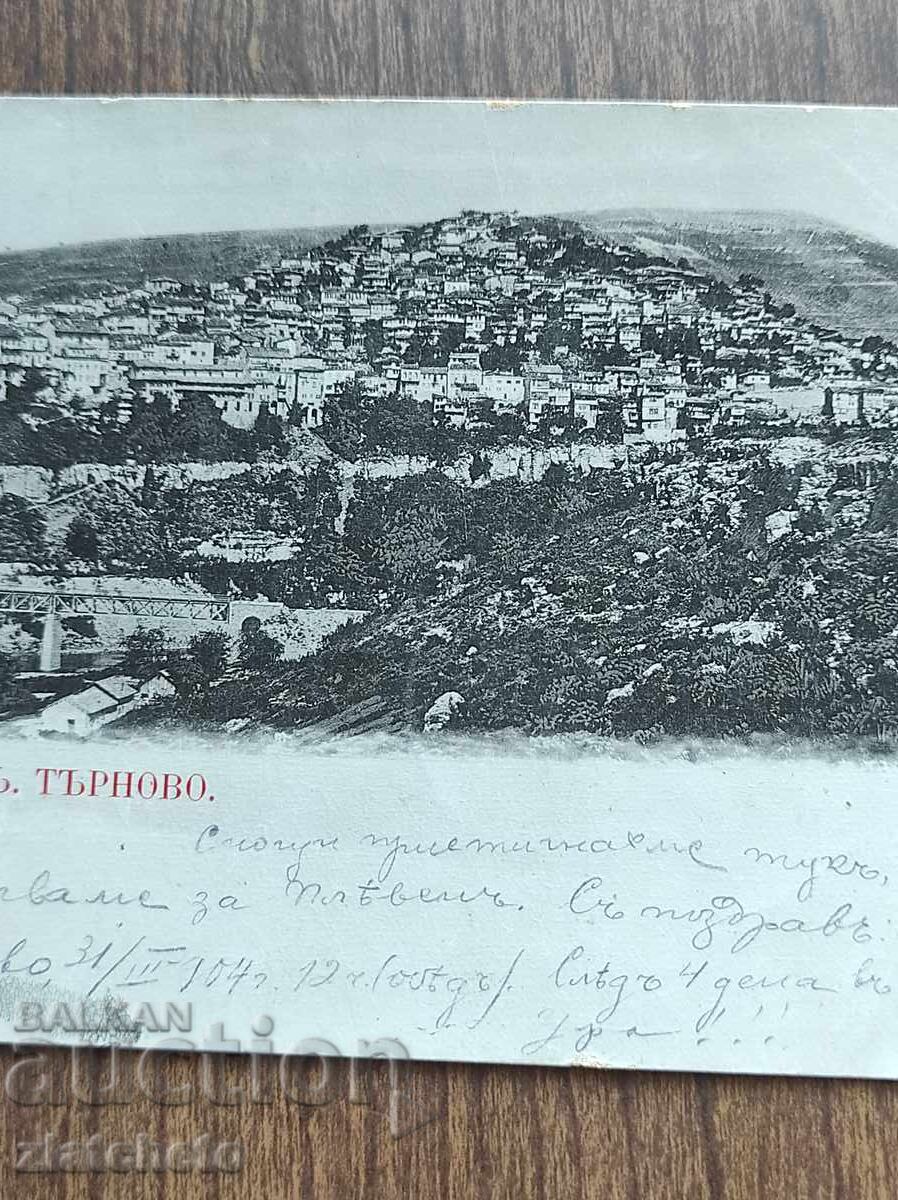 Ъ. ТЪРНОВО.
Снощи пристигнахме тукъ,
ваме за Плѣвенъ. Съ поздравъ.
во, 31/III 904 г. 12 ч. (обѣдъ). Слѣдъ 4 дена въ
Ура!!!
BALKAN
auction
zlatcheto